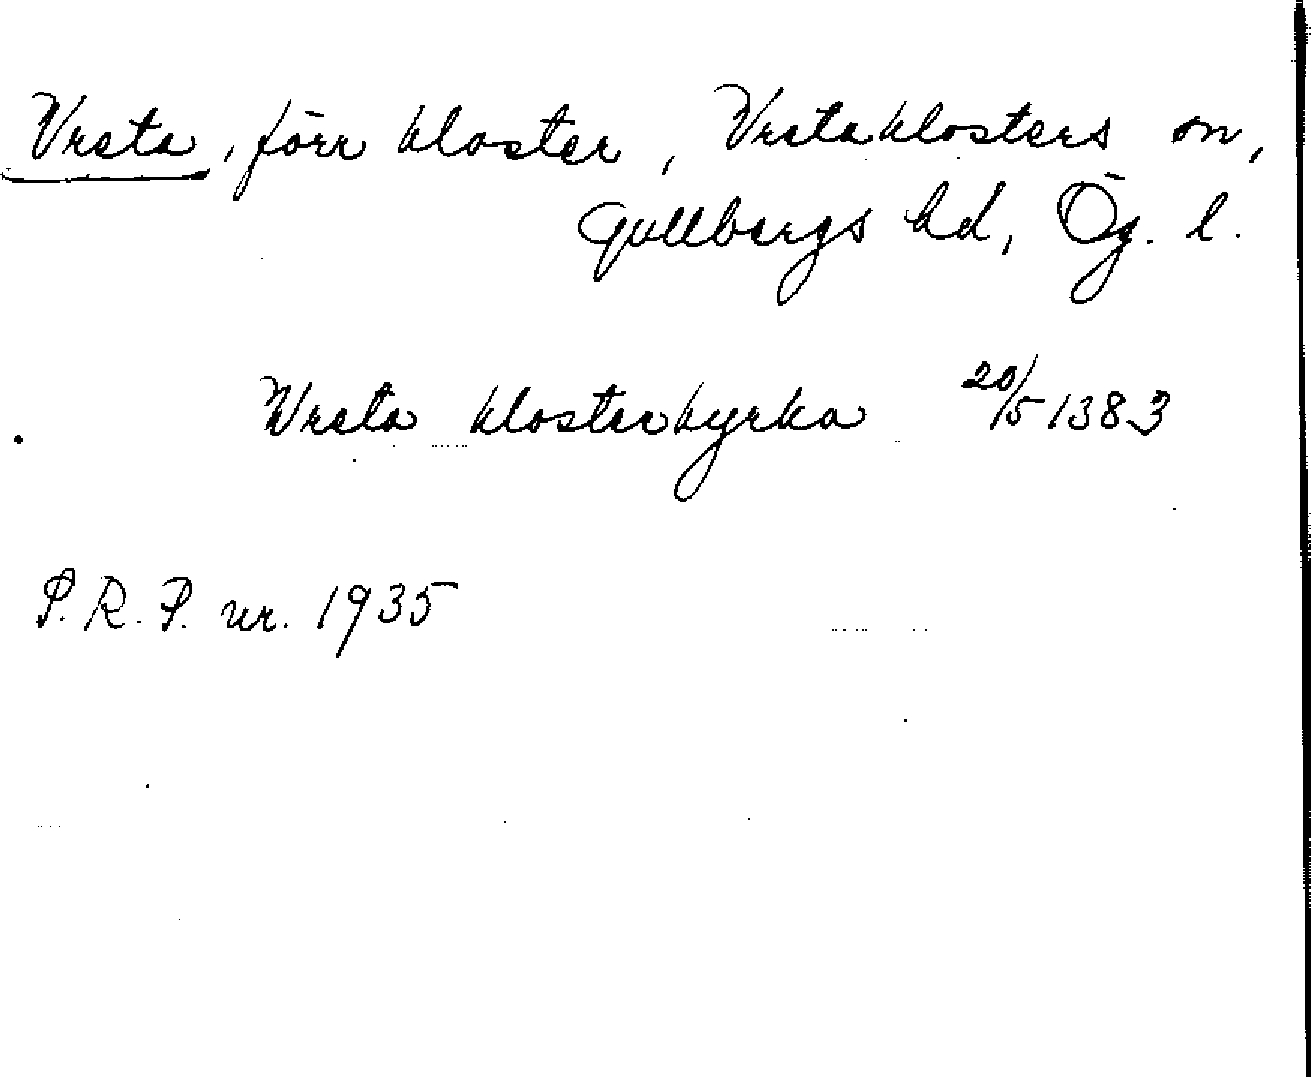 Vreta, förr kloster, Vreta klosters sn,
Gullbergs hd, Ög. l.
Wreta klosterkyrka 20/5 1383
P.R.P. nr. 1935